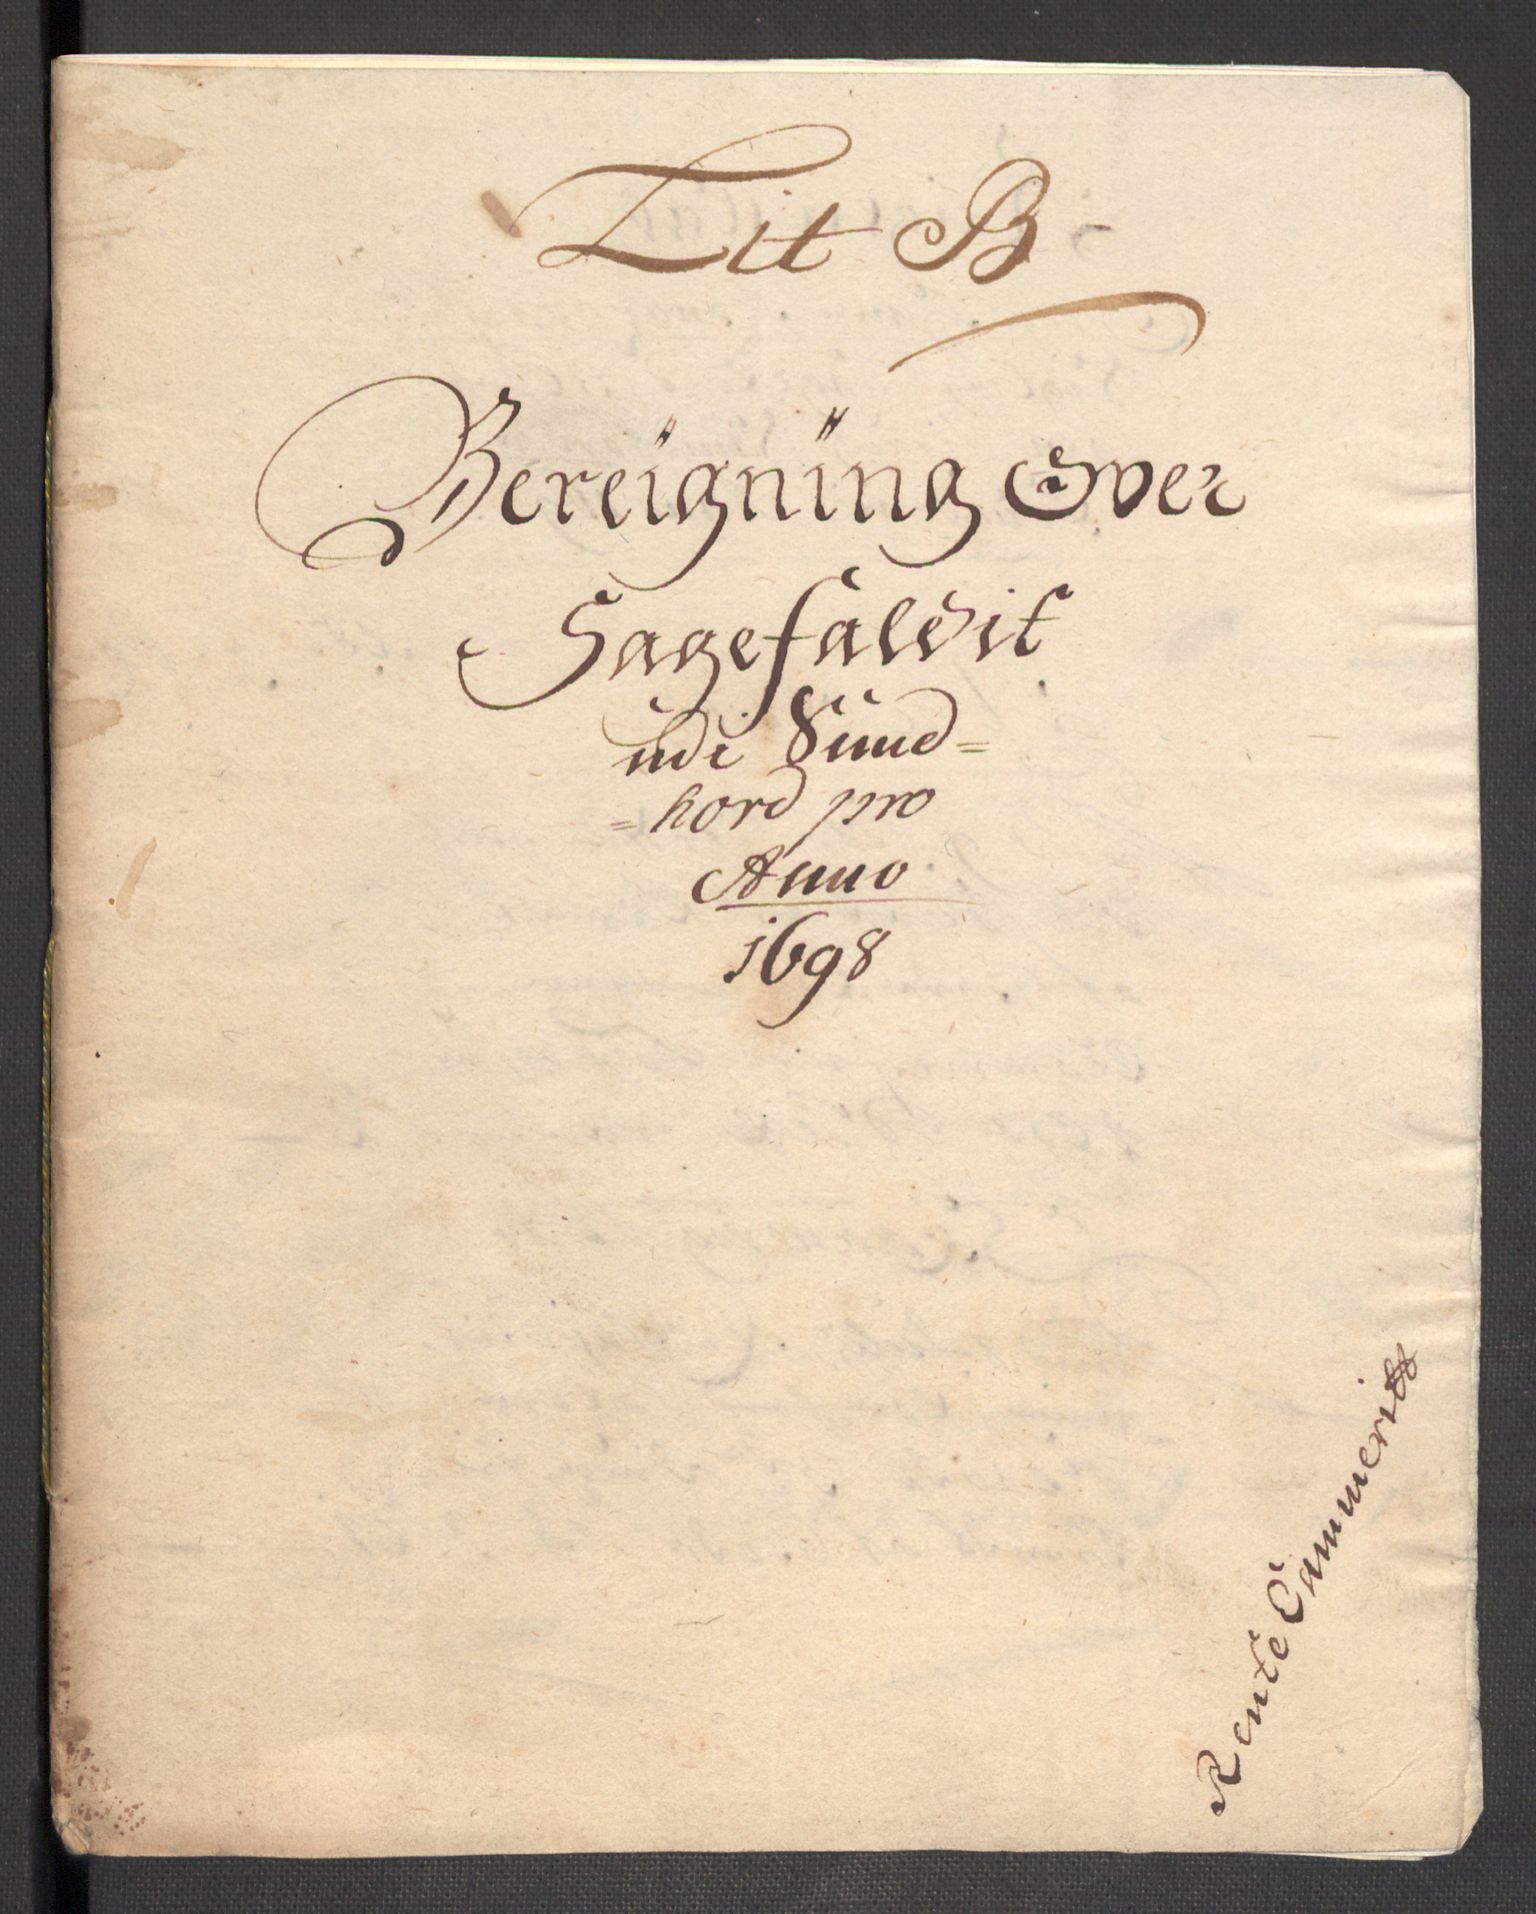 Lit B
Bereigning Over
Sagefaldit
udi Sund=
=hord pro
Anno
1698
Rente Cammeritt